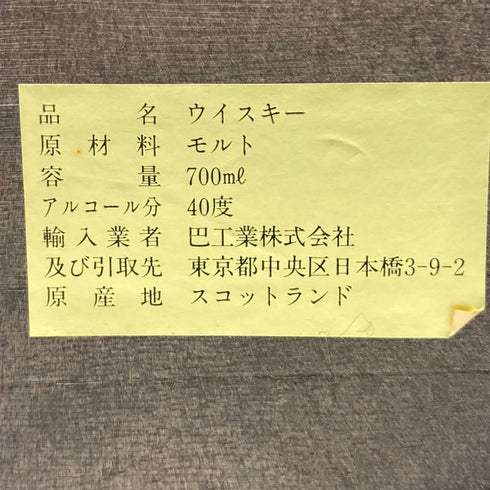 品名 ウイスキー
原材料 モルト
容量 700mℓ
アルコール分 40度
輸入業者 巴工業株式会社
及び引取先 東京都中央区日本橋3-9-2
原産地 スコットランド